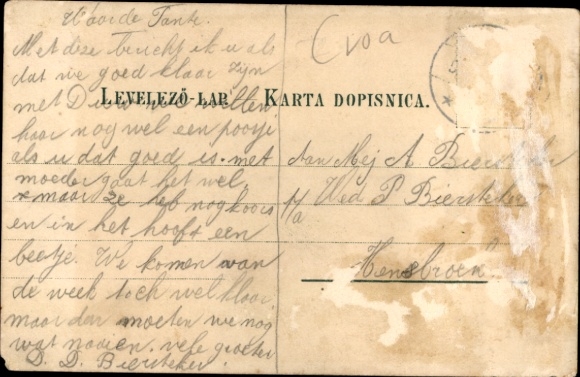 Waarde Tante.
Met deze bericht ik u als
dat we goed klaar zijn
met
haar nog wel een pootje
als u dat goed is. met
moeder gaat het wel
maar ze heb nog koors
en in het hooft een
beetje. We komen van
de week toch wel klaar
maar dan moeten we nog
wat naaien. vele groeten
D. D. Biersteker.
Croa
LEVELEZŐ-LAP. KARTA DOPISNICA.
Aan Mej A. Biersteker
Wed P. Biersteker
Hensbroek